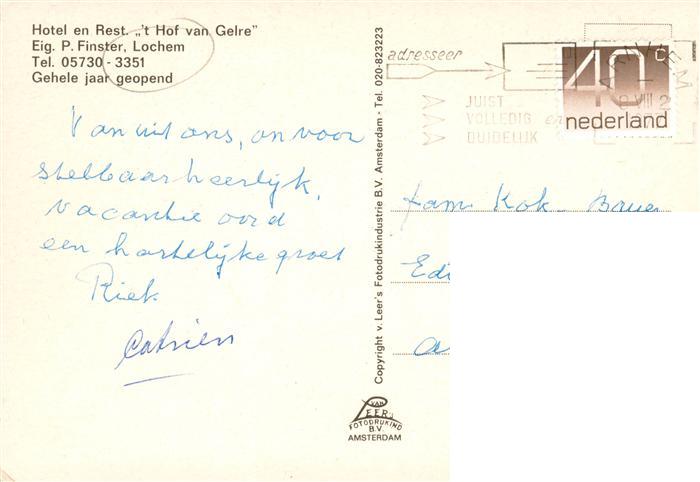 Hotel en Rest. „'t Hof van Gelre”
Eig. P. Finster, Lochem
Tel. 05730 - 3351
Gehele jaar geopend
Van uit ons, on voor
stelbaar heerlijk,
vacantie oord
een hartelijke groet
Riek
Catrien
Copyright v. Leer's Fotodrukindustrie B.V. Amsterdam - Tel. 020-823223
VAN
LEER's
FOTODRUKIND
B.V.
AMSTERDAM
adresseer
JUIST
VOLLEDIG en
DUIDELIJK
ARNHEM
VIII
40c
nederland
fam. Kok - Bauer
Edi
a